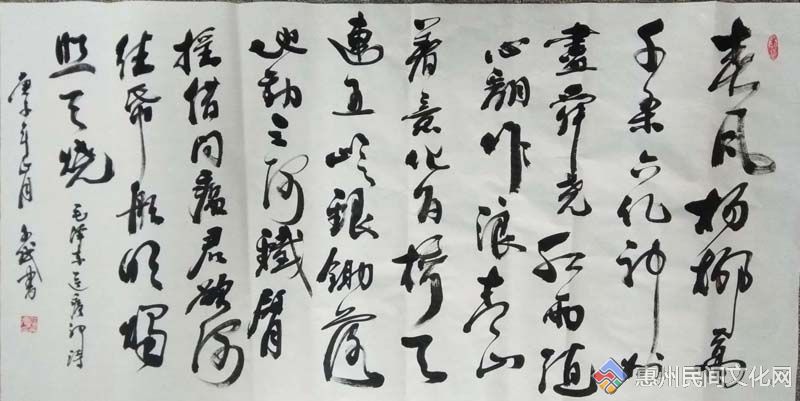 春风杨柳萬
千条六亿神州
盡舜尧红雨随
心翻作浪青山
着意化为桥天
連五岭銀鋤落
地動三河鐵臂
摇借问瘟君欲何
往纸船明燭
照天烧
毛泽东送瘟神诗
庚子年正月 书
惠州民间文化网